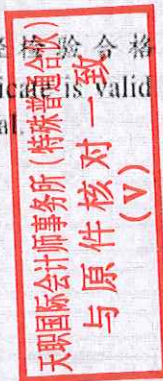 检验合格
icate is valid
al.
天职国际会计师事务所（特殊普通合伙）
与原件核对一致
（V）